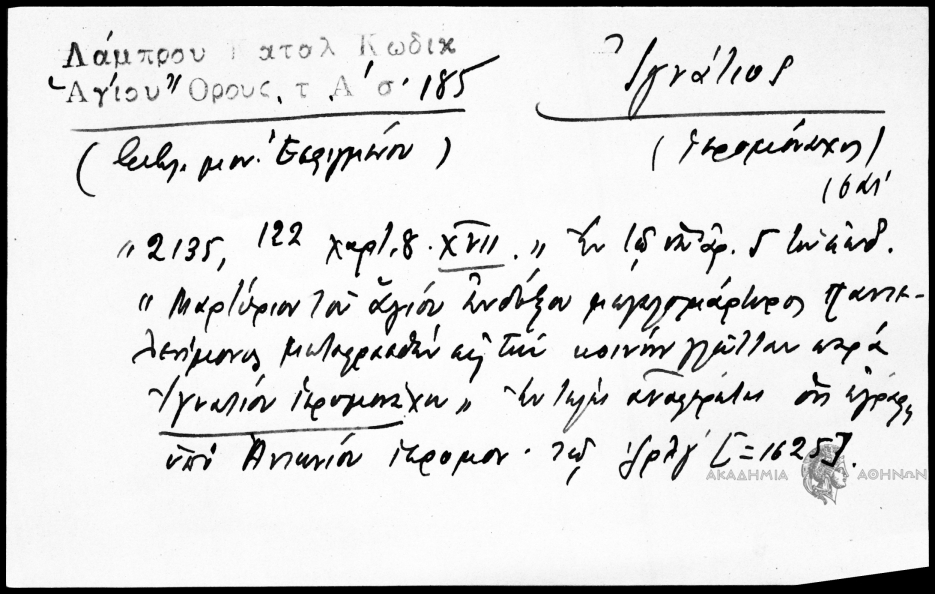 Λάμπρου Καταλ Κωδικ
Ἁγίου Ὄρους, τ. Α΄ σ. 185
(βιβλ. μον. Ἐσφιγμένου)
Ἰγνάτιος
(ἱερομόναχος)
"2135, 122 χαρτ. 8. XVII." Ἐν τῷ ὑπ' ἀρ. 5
"Μαρτύριον τοῦ ἁγίου ἐνδόξου μεγαλομάρτυρος Παντε-
λεήμονος μεταφρασθὲν εἰς τὴν κοινὴν γλῶτταν παρὰ
Ἰγνατίου ἱερομονάχου" Ἐν τέλει ἀναφέρεται ὅτι ἐγράφη
ὑπὸ Ἀντωνίου ἱερομον. τῷ ͵ζρλγ΄ [=1625].
ΑΚΑΔΗΜΙΑ ΑΘΗΝΩΝ